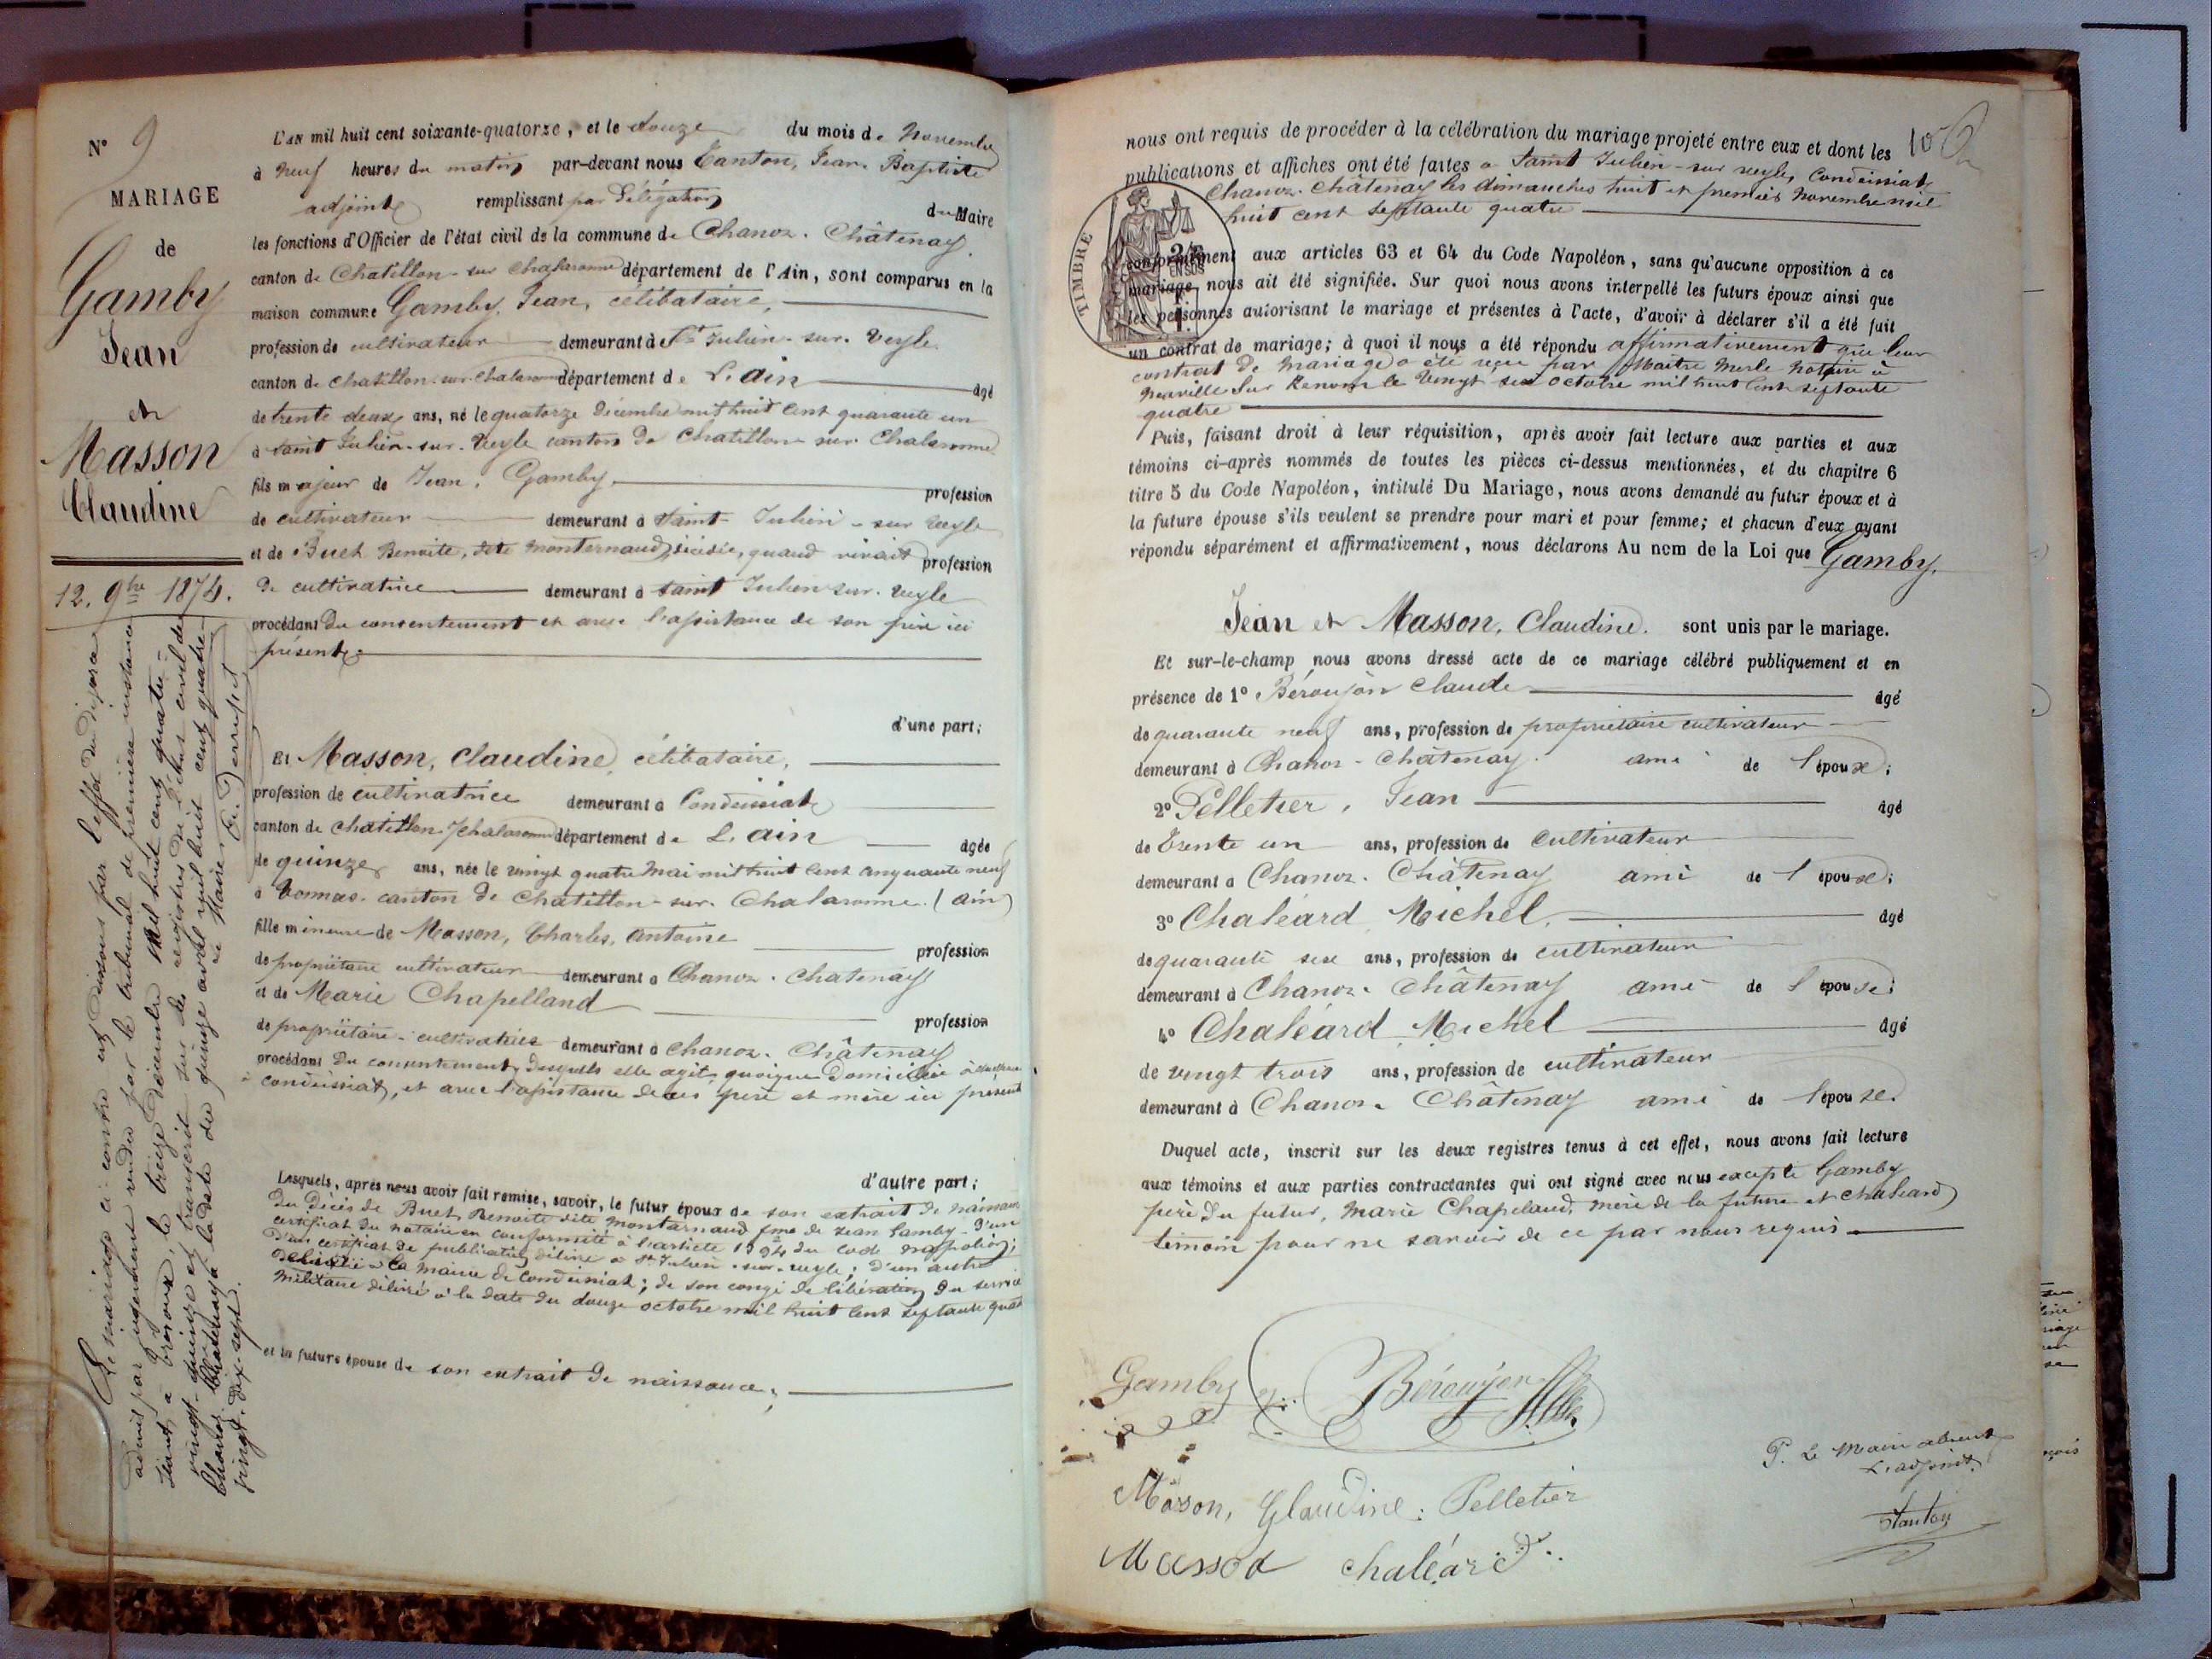 N° 9
MARIAGE
de
Gamby
Jean
et
Masson
Claudine
12. 9bre 1874.
Le mariage ci-contre est dissous par l'effet du divorce
admis par jugement rendu par le tribunal de première instance
séant à Trévoux, le treize décembre mil huit cent quatre-
vingt-quinze et transcrit sur les registres de l'état civil de
Chanoz-Chatenay à la date du quinze avril mil huit cent quatre-
vingt-dix-sept.
Le Maire
L'AN mil huit cent soixante-quatorze, et le douze du mois de Novembre
à neuf heures du matin par-devant nous Tanton, Jean Baptiste
adjoint remplissant par Délégation du Maire
les fonctions d'Officier de l'état civil de la commune de Chanoz-Châtenay
canton de Chatillon-sur Chalaronne département de l'Ain, sont comparus en la
maison commune Gamby, Jean, célibataire,
profession de cultivateur demeurant à St Julien-sur-Veyle
canton de Chatillon-sur-Chalaronne département de L'ain âgé
de trente deux ans, né le quatorze Décembre mil huit cent quarante un
à Saint Julien-sur-Veyle canton de Chatillon-sur Chalaronne
fils majeur de Jean, Gamby profession
de cultivateur demeurant à Saint-Julien-sur Veyle
et de Buet Benoite, dite Monternaud, décédée, quand vivait profession
de cultivatrice demeurant à Saint Julien-sur-Veyle
procédant du consentement et avec l'assistance de son père ici
présent
d'une part;
Et Masson, Claudine, célibataire,
profession de cultivatrice demeurant à Condeissiat
canton de Chatillon s/ Chalaronne département de L'ain âgée
de quinze ans, née le vingt quatre Mai mil huit cent cinquante neuf
à Vonnas canton de Chatillon-sur-Chalaronne (ain)
fille mineure de Masson, Charles, Antoine profession
de propriétaire cultivateur demeurant à Chanoz-Chatenay
et de Marie Chapelland profession
de propriétaire-cultivatrice demeurant à Chanoz-Châtenay
procédant du consentement desquels elle agit, quoique domiciliée à
Condeissiat, et avec l'assistance de ses père et mère ici présent
d'autre part;
Lesquels, après nous avoir fait remise, savoir, le futur époux de son extrait de naissance
du Décès de Buet Benoite dite Montarnaud fme de Jean Gamby - d'un
certificat du notaire en conformité à l'article 1394 du code napoléon;
d'un certificat de publication délivré à St Julien-sur-veyle; d'un autre
délivré à la mairie de Condeissiat; de son congé de libération du service
militaire délivré à la date du douze octobre mil huit cent septante quat
et la future épouse de son extrait de naissance,
nous ont requis de procéder à la célébration du mariage projeté entre eux et dont les
publications et affiches ont été faites à Saint Julien-sur veyle, Condeissiat
Chanoz-Châtenay les dimanches huit et premier novembre mil
huit cent septante quatre
TIMBRE
conformément aux articles 63 et 64 du Code Napoléon, sans qu'aucune opposition à ce
mariage nous ait été signifiée. Sur quoi nous avons interpellé les futurs époux ainsi que
les personnes autorisant le mariage et présentes à l'acte, d'avoir à déclarer s'il a été fait
un contrat de mariage; à quoi il nous a été répondu affirmativement que leur
contrat de mariage a été reçu par Maître Merle notaire à
Neuville sur Renom le vingt six octobre mil huit cent septante
quatre
Puis, faisant droit à leur réquisition, après avoir fait lecture aux parties et aux
témoins ci-après nommés de toutes les pièces ci-dessus mentionnées, et du chapitre 6
titre 5 du Code Napoléon, intitulé Du Mariage, nous avons demandé au futur époux et à
la future épouse s'ils veulent se prendre pour mari et pour femme; et chacun d'eux ayant
répondu séparément et affirmativement, nous déclarons Au nom de la Loi que Gamby,
Jean et Masson, Claudine. sont unis par le mariage.
Et sur-le-champ nous avons dressé acte de ce mariage célébré publiquement et en
présence de 1° Béroujon Claude âgé
de quarante neuf ans, profession de propriétaire cultivateur
demeurant à Chanoz-Châtenay ami de l'époux;
2° Pelletier, Jean âgé
de Trente un ans, profession de cultivateur
demeurant à Chanoz-Châtenay ami de l'épouse;
3° Chaléard Michel, âgé
de quarante six ans, profession de cultivateur
demeurant à Chanoz-Châtenay ami de l'épouse;
4° Chaléard Michel âgé
de vingt trois ans, profession de cultivateur
demeurant à Chanoz-Châtenay ami de l'épouse.
Duquel acte, inscrit sur les deux registres tenus à cet effet, nous avons fait lecture
aux témoins et aux parties contractantes qui ont signé avec nous excepté Gamby
père du futur, Marie Chapeland, mère de la future et chaleard
témoin pour ne savoir de ce par nous requis
Gamby Béroujon
Mason, Glaudine. Pelletier
Masson chaléard
P. Le Maire absent
L'adjoint
Tanton